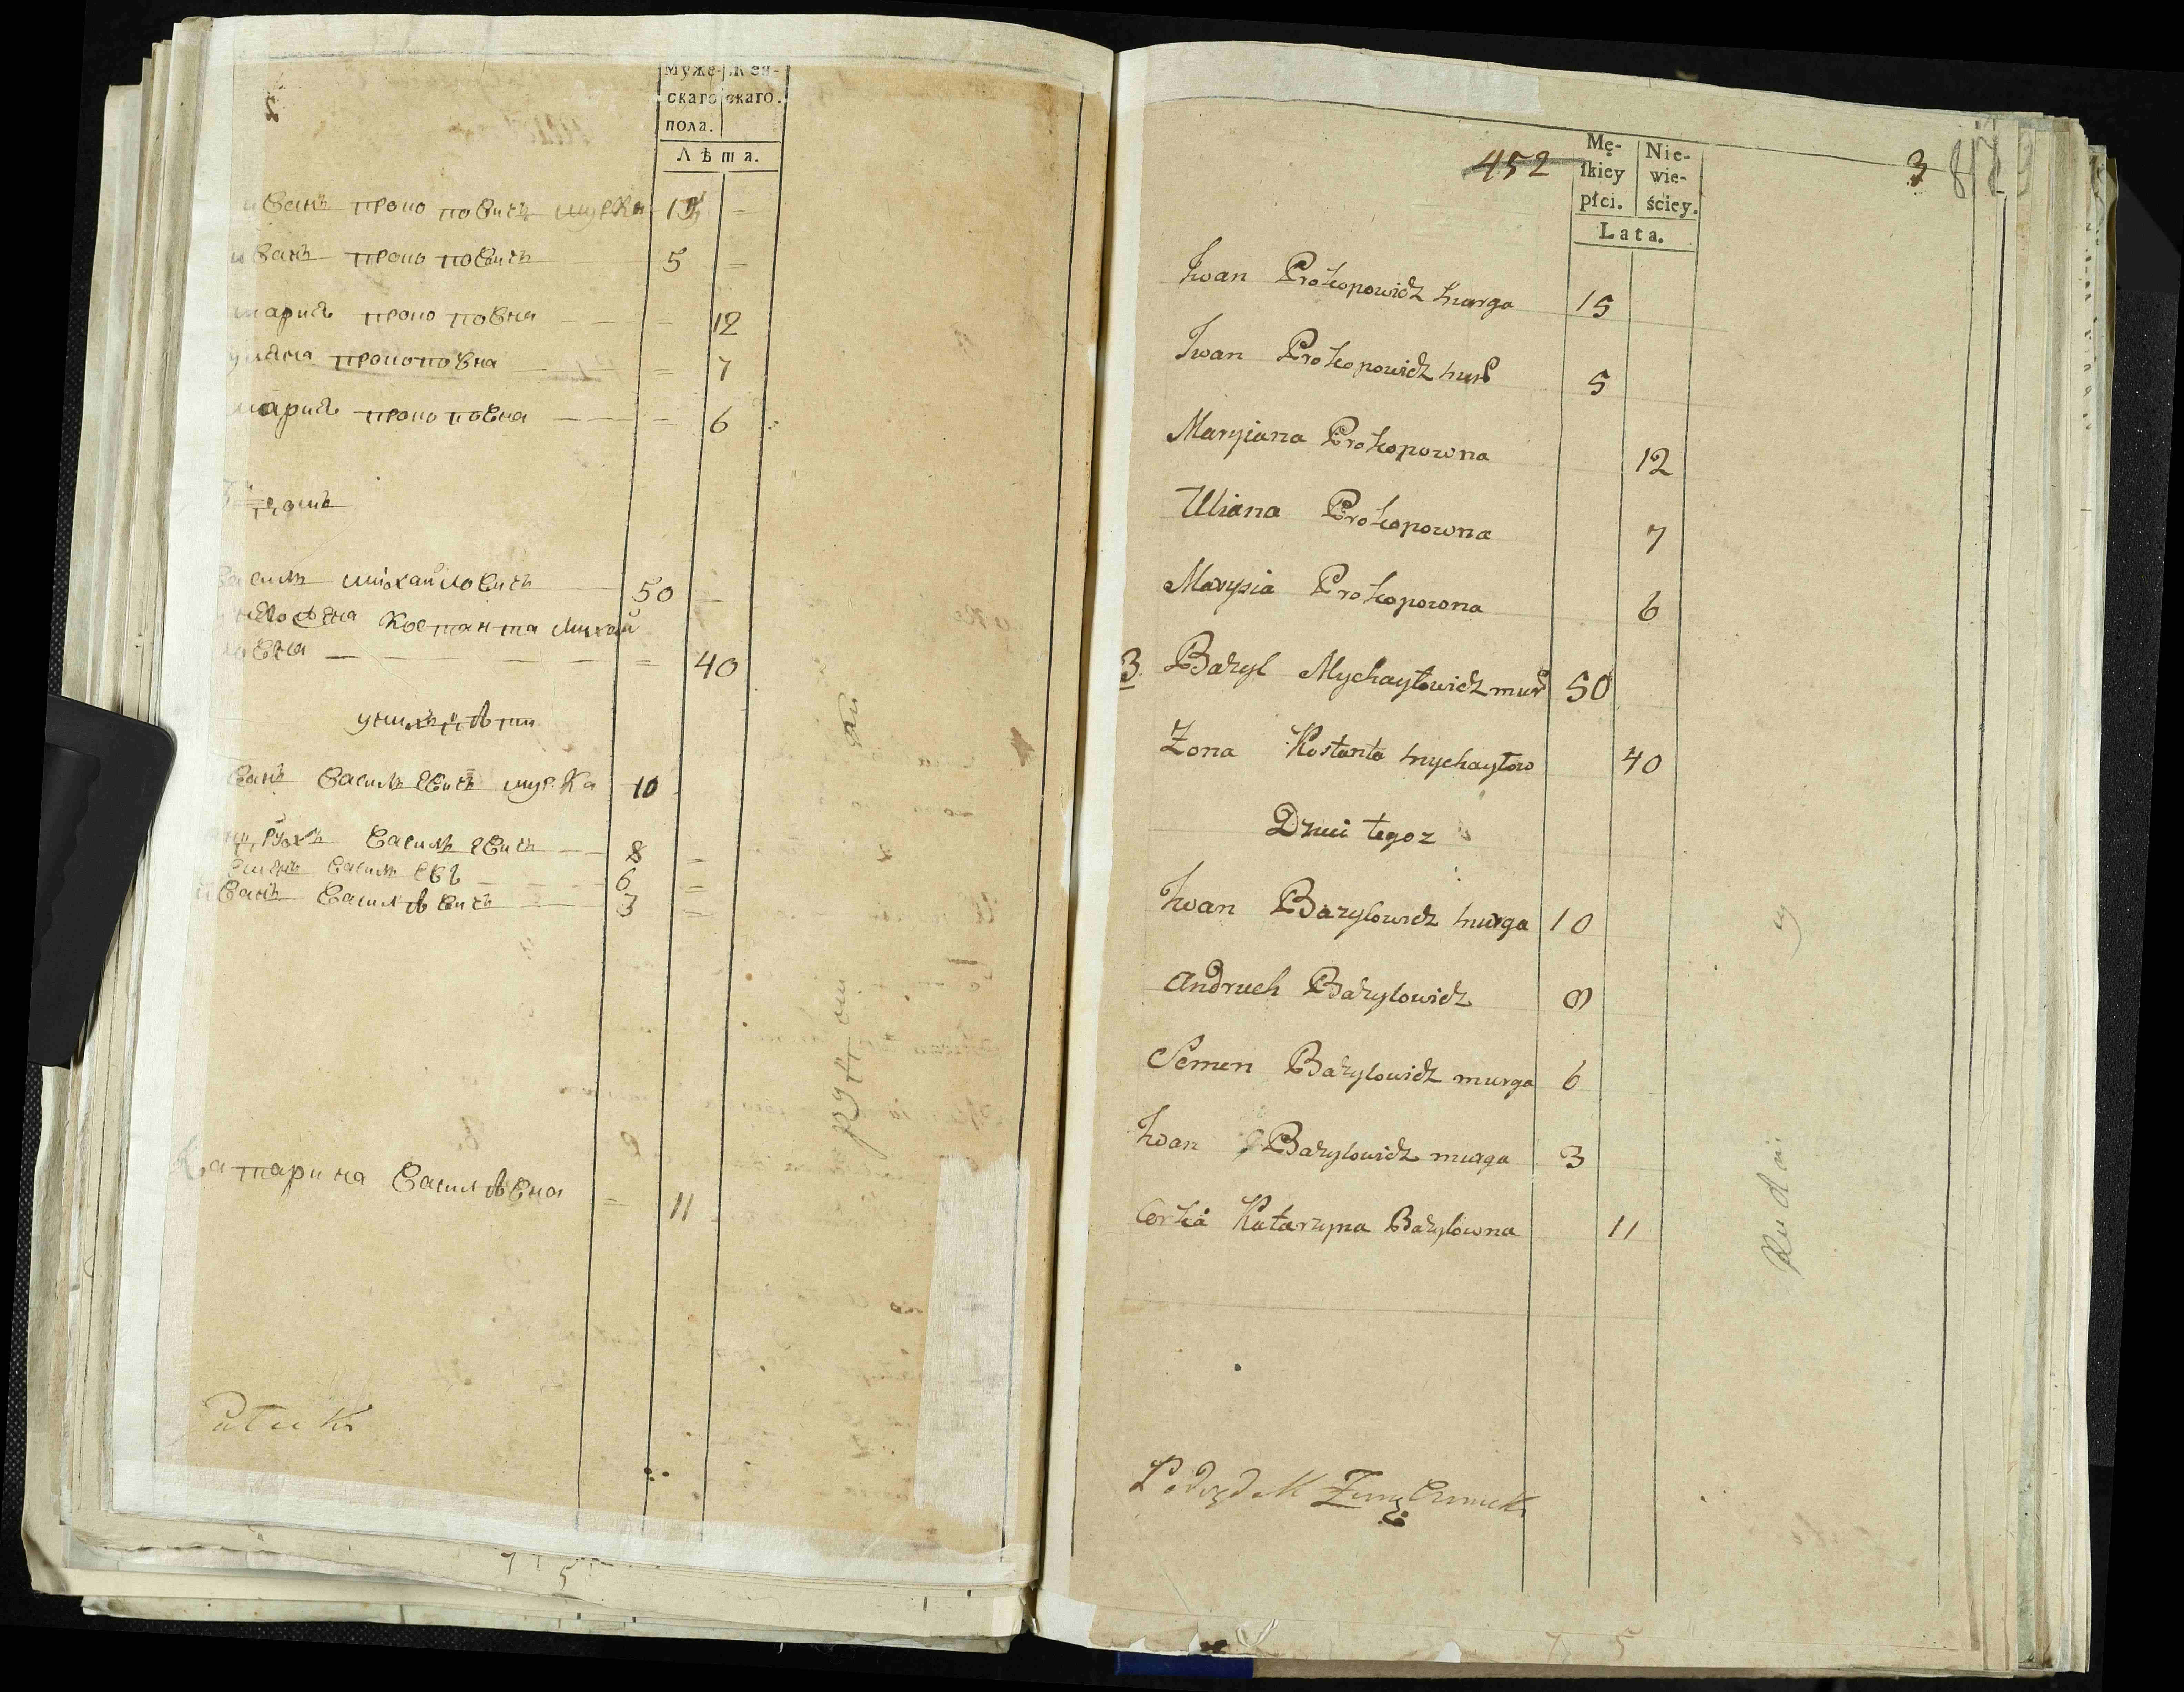 Муже- Жен-
скаго скаго.
пола.
Лѣта.
иванъ прокоповичъ мурка 15
иванъ прокоповичъ 5
мария прокоповна 12
уляна прокоповна 7
мария прокоповна 6
3 й домъ
василь михайловичъ 50
жена Костанта михай
ловна 40
у нихъ дѣти
иванъ васильевичъ мурка 10
андрухъ васильевичъ 8
василь 6
иванъ васильевичъ 3
Катарина василѣвна 11
452
3
Mę- Nie-
ſkiey wie-
płci. ściey.
Lata.
Iwan Prokopowicz murga 15
Iwan Prokopowicz mur 5
Maryjana Prokopowna 12
Uliana Prokopowna 7
Marysia Prokopowna 6
3 Bazyl Mychayłowicz mur 50
Zona Kostanta mychayłow 40
Dzieci tegoz
Iwan Bazylowicz murga 10
Andruch Bazylowicz 8
Semen Bazylowicz murga 6
Iwan Bazylowicz murga 3
Corka Katarzyna Bazylowna 11